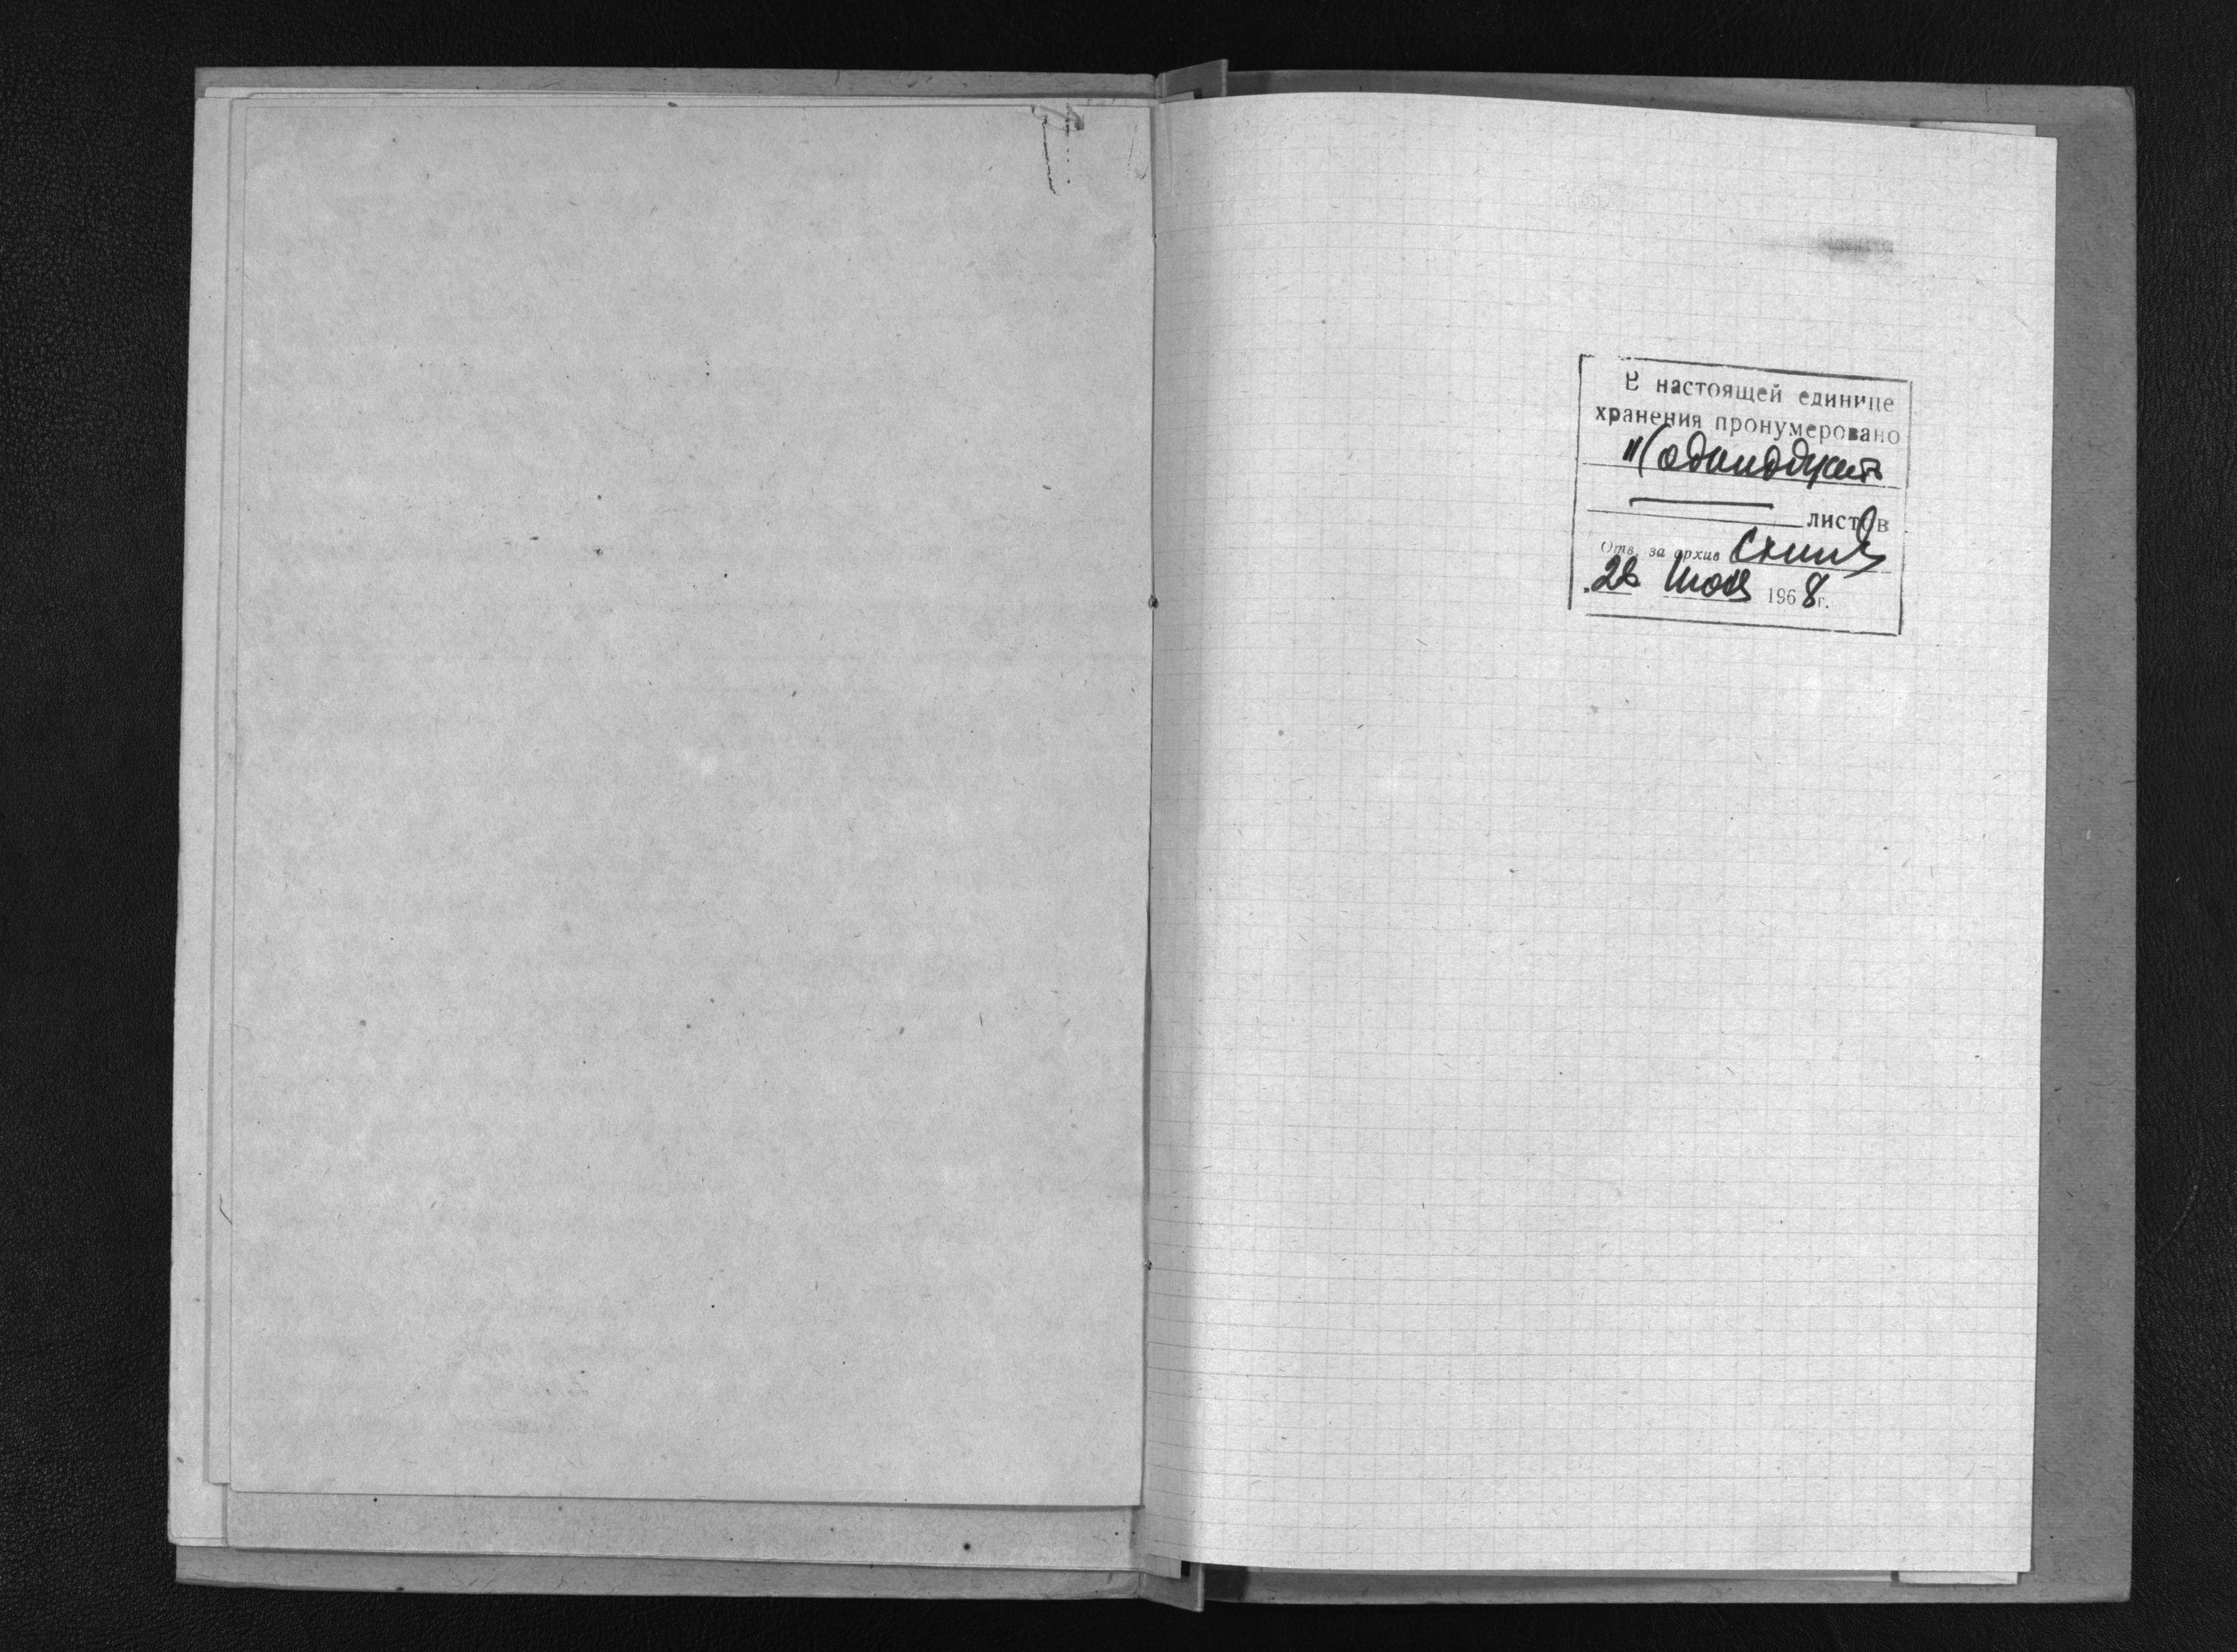 В настоящей единице
хранения пронумеровано
11(одиннадцать
листов
Отв. за архив
1968 г.